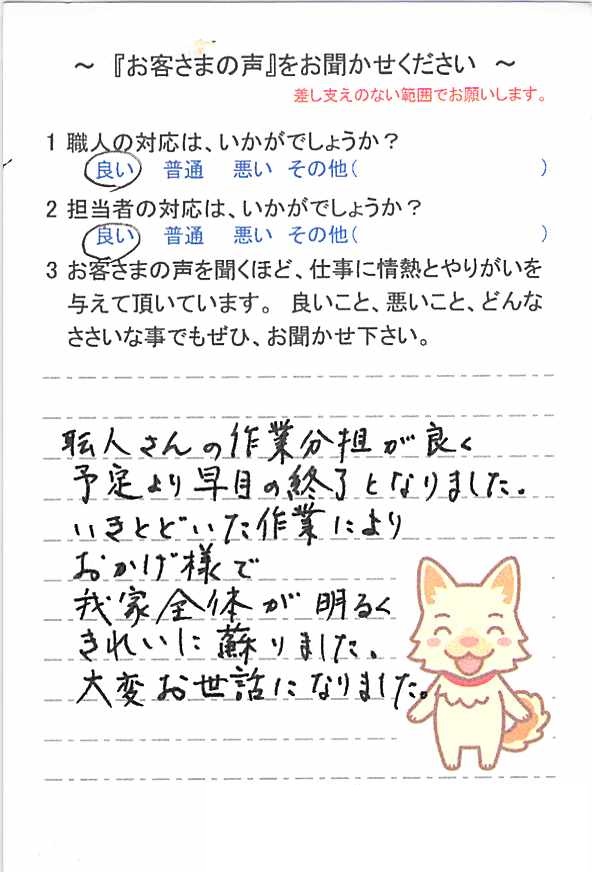 ～ 『お客さまの声』をお聞かせください ～
差し支えのない範囲でお願いします。
1 職人の対応は、いかがでしょうか？
良い 普通 悪い その他( )
2 担当者の対応は、いかがでしょうか？
良い 普通 悪い その他( )
3 お客さまの声を聞くほど、仕事に情熱とやりがいを
与えて頂いています。 良いこと、悪いこと、どんな
ささいな事でもぜひ、お聞かせ下さい。
職人さんの作業分担が良く
予定より早目の終了となりました。
いきとどいた作業により
おかげ様で
我家全体が明るく
きれいに蘇りました。
大変お世話になりました。